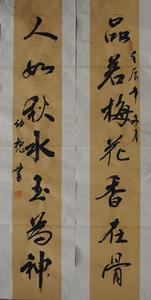 品若梅花香在骨
人如秋水玉為神